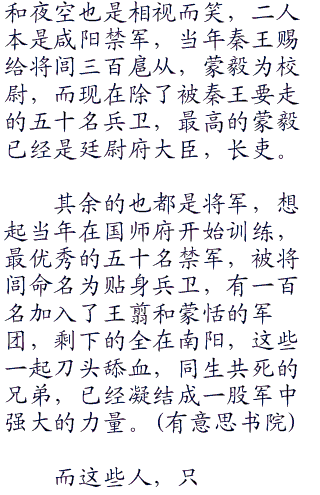 和夜空也是相视而笑，二人
本是咸阳禁军，当年秦王赐
给将闾三百扈从，蒙毅为校
尉，而现在除了被秦王要走
的五十名兵卫，最高的蒙毅
已经是廷尉府大臣，长吏。
其余的也都是将军，想
起当年在国师府开始训练，
最优秀的五十名禁军，被将
闾命名为贴身兵卫，有一百
名加入了王翦和蒙恬的军
团，剩下的全在南阳，这些
一起刀头舔血，同生共死的
兄弟，已经凝结成一股军中
强大的力量。(有意思书院)
而这些人，只